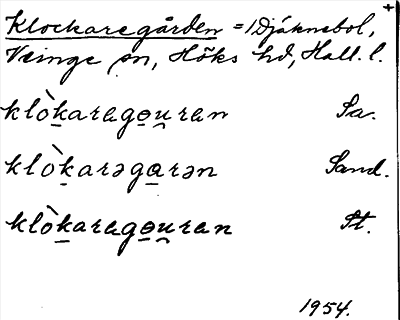 +
Klockaregården = Djäknebol,
Veinge sn, Höks hd, Hall. l.
klò̱karago̱u̯ran Sa.
klòḵarəga̱rən Sand.
klòḵarago̱u̯ran St.
1954.